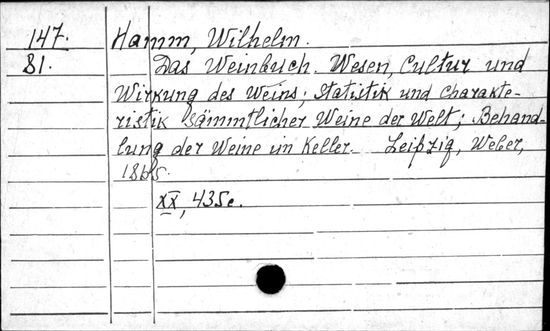 147. Hamm, Wilhelm.
81. Das Weinbuch. Wesen, Cultur und
Wirkung des Weins; Statistik und Charakte-
ristik sämmtlicher Weine der Welt; Behand-
lung der Weine im Keller. Leipzig, Weber,
1865.
XX, 435 c.